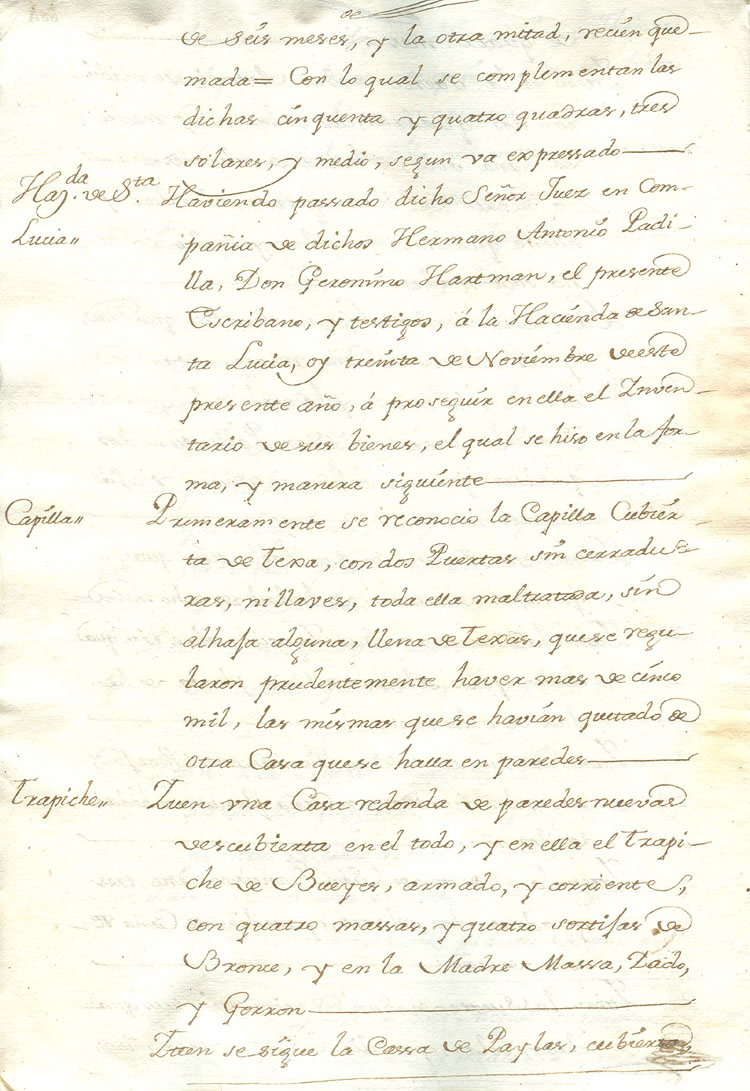 de
de seis meses, y la otra mitad, recien que-
mada= Con lo qual se complementan las
dichas cinquenta y quatro quadras, tres
solares, y medio, segun va expressado
Haz.da de S.ta
Lucia,,
Haviendo passado dicho Señor Juez en Com-
pañia de dichos Hermano Antonio Padi-
lla, Don Geronimo Hartman, el presente
Escribano, y testigos, á la Hacienda de San-
ta Lucia, oy treinta de Noviembre de este
presente año, á proseguir en ella el Inven-
tario de sus bienes, el qual se hiso en la for-
ma, y manera siguiente
Capilla,,
Primeramente se reconocio la Capilla Cubier-
ta de Texa, con dos Puertas sin cerradu-
ras, ni llaves, toda ella maltratada, sin
alhaja alguna, llena de Texas, que se regu-
laron prudentemente haver mas de cinco
mil, las mismas que se havian quitado de
otra Casa que se halla en paredes
Trapiche,,
Ituen vna Casa redonda de paredes nuevas
descubierta en el todo, y en ella el Trapi-
che de Bueyes, armado, y corriente,
con quatro massas, y quatro sortijas de
Bronce, y en la Madre Massa, Dado,
y Gorron
Ituen se sigue la Cassa de Paylas, cubierta